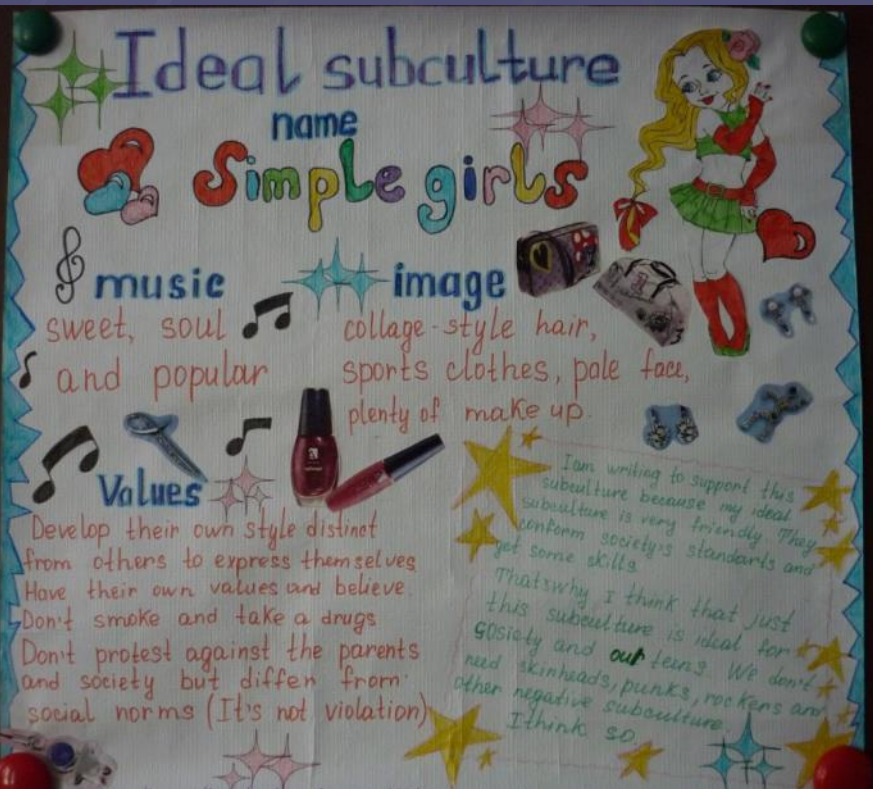 Ideal subculture
name
Simple girls
music
sweet, soul
and popular
image
collage-style hair,
sports clothes, pale face,
plenty of make up.
Values
Develop their own style distinct
from others to express themselves
Have their own values and believe.
Don't smoke and take a drugs
Don't protest against the parents
and society but differ from
social norms (It's not violation)
I am writing to support this
subculture because my ideal
subculture is very friendly. They
conform society's standards and
get some skills
Thatswhy I think that just
this subculture is ideal for
gosiety and our teens. We don't
need skinheads, punks, rockers and
other negative subculture.
I think so.